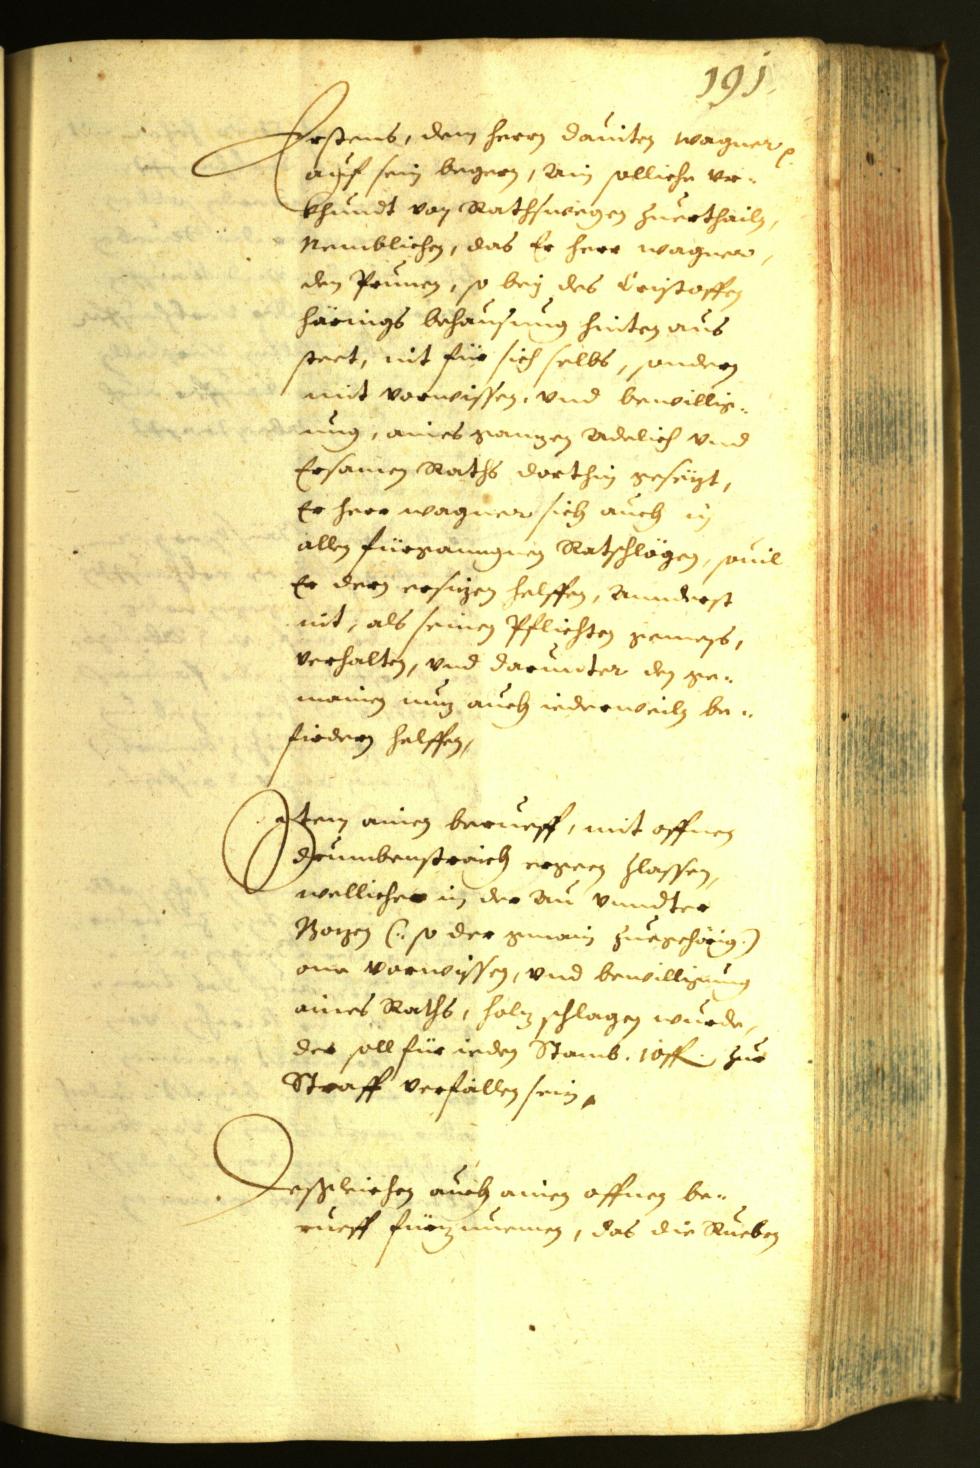 191
Erstens, dem herrn Dauiten Wagner,
auf sein begern, ain solliche vr-
khundt von Rathswegen zuerthailn,
Nemblichen, das Er herr Wagner,
den Prunen, so bey des Cristoffen
härings behausung hinten aus
steet, nit für sich selbs, sondern
mit vorwissen, vnd bewillig-
ung, aines ganzen Adelich vnd
Ersamen Raths dorthin gesezt,
Er herr Wagner sich auch in
allen fürganngnen Ratschlägen, souil
Er dern ersizen helffen, Annderst
nit, als seinen Pflichten gemeß,
verhalten, vnd darunter den ge-
mainen nuz auch iederweiln be-
firdern helffen,
Item ainen berueff, mit offnen
Drumbenstraich ergeen zlassen,
wellicher in der Au vnndter
Bozen (: so der gmain zuegehörig :)
one vorwissen, vnd bewilligung
aines Raths, holz schlagen wurde,
der soll für ieden Stamb. 10 ff. zur
Straff verfallen sein,
Deßgleichen auch ainen offnen be-
rueff fürzunemen, das die Rueben